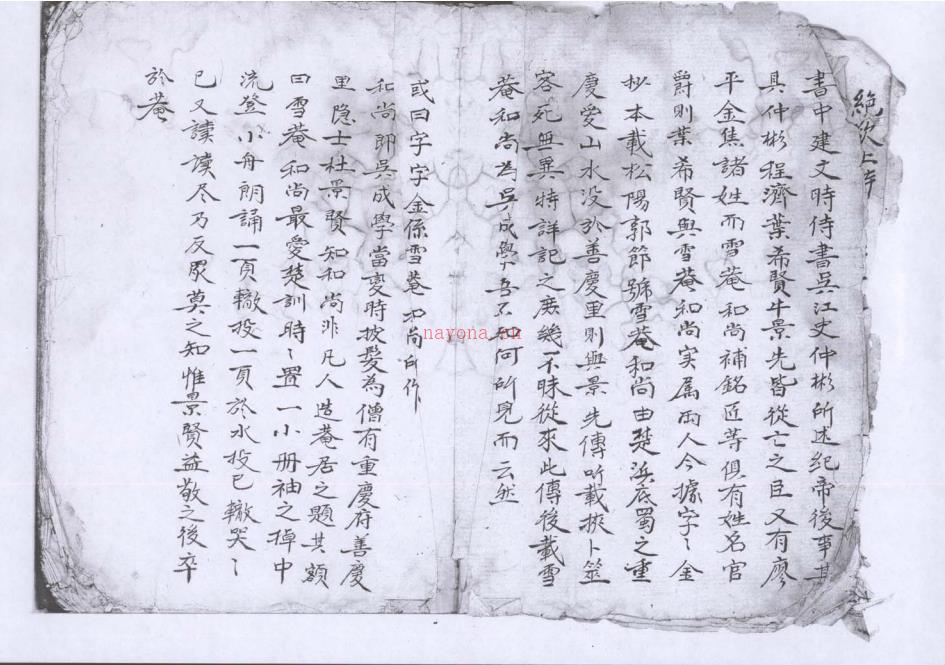 絕次上卒
書中建文時侍書吳江史仲彬所述紀帝後事其
具仲彬程濟葉希賢牛景先皆從亡之臣又有廖
平金焦諸姓而雪菴和尚補鍋匠等俱有姓名官
爵則葉希賢與雪菴和尚実属两人今據字〻金
抄本載松陽郭節號雪菴和尚由楚浜底蜀之重
慶愛山水没於善慶里則與景先傳所載挾卜筮
客死無異特詳記之庶幾不昧從來此傳後載雪
菴和尚為吳成學吾不知何所見而云然
或曰字字金係雪菴和尚所作
和尚即吳成學當变時披髮為僧有重慶府善慶
里隐士杜景賢知和尚非凡人造菴居之題其額
曰雪菴和尚最爱楚訓時〻置一小册袖之掉中
流登小舟朗誦一頁輒投一頁於水投已輒哭〻
已又讀讀尽乃反眾莫之知惟景賢益敬之後卒
於菴
nayona.cn